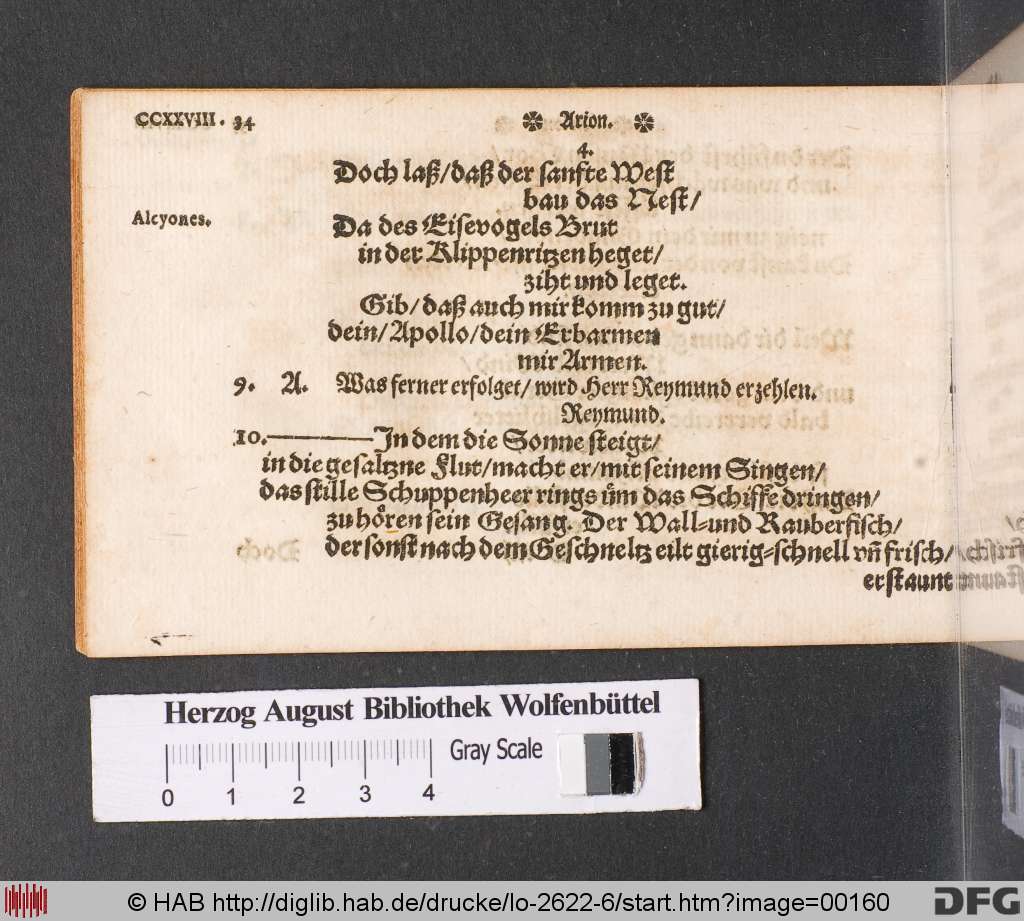 CCXXVIII. 34 Arion.
4.
Doch laß/daß der sanfte West
bau das Nest/
Alcyones. Da des Eisevogels Brut
in der Klippenritzen heget/
ziht und leget.
Gib/daß auch mir komm zu gut/
dein/Apollo/dein Erbarmen
mir Armen.
9. A. Was ferner erfolget/wird Herr Reymund erzehlen.
Reymund.
10.———In dem die Sonne steigt/
in die gesaltzne Flut/macht er/mit seinem Singen/
das stille Schuppenheer rings üm das Schiffe dringen/
zu hören sein Gesang. Der Wall-und Rauberfisch/
der sonst nach dem Geschneltz eilt gierig-schnell vn̄ frisch/
erstaunt
Herzog August Bibliothek Wolfenbüttel
Gray Scale
0 1 2 3 4
© HAB http://diglib.hab.de/drucke/lo-2622-6/start.htm?image=00160
DFG